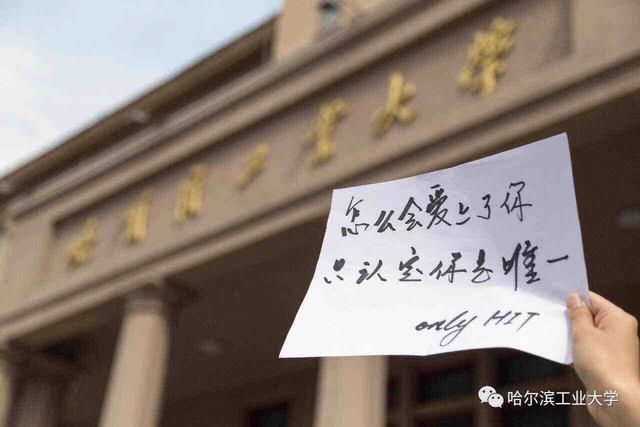 哈尔滨工业大学
怎么会爱上了你
只认定你是唯一
only HIT
哈尔滨工业大学